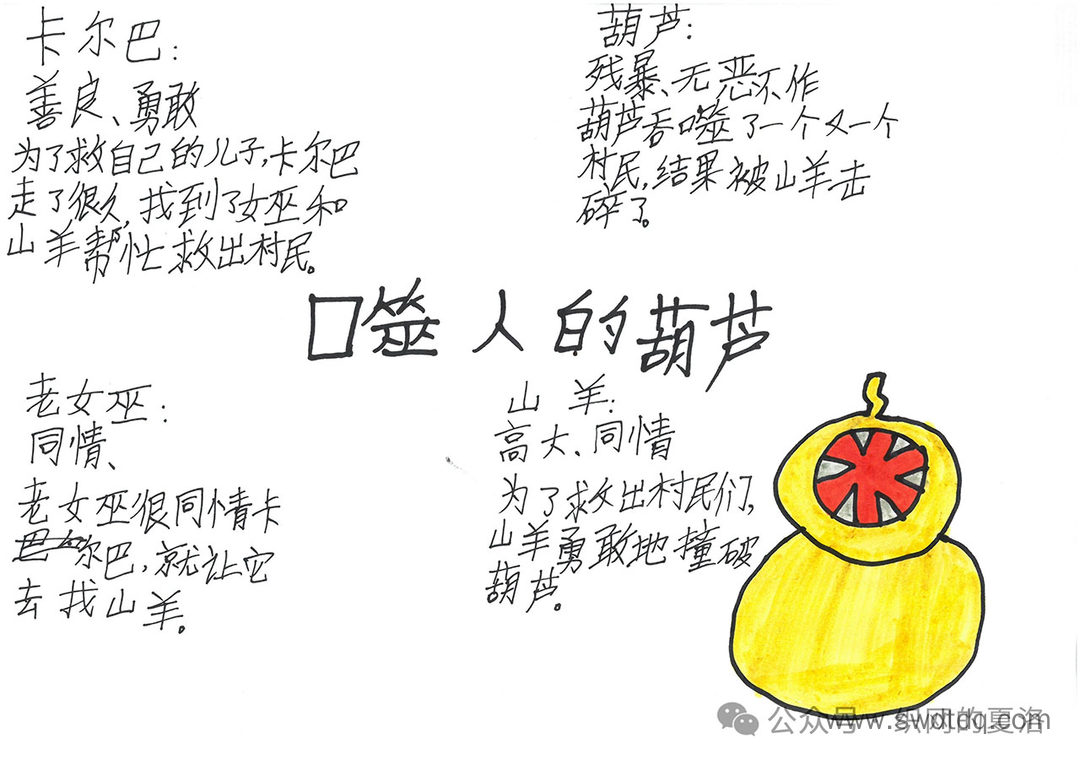 卡尔巴:
善良、勇敢
为了救自己的儿子,卡尔巴
走了很久,找到了女巫和
山羊帮忙救出村民。
葫芦:
残暴、无恶不作
葫芦吞噬了一个又一个
村民,结果被山羊击
碎了。
口噬人的葫芦
老女巫:
同情、
老女巫很同情卡
尔巴,就让它
去找山羊。
山羊:
高大、同情
为了救出村民们,
山羊勇敢地撞破
葫芦。
公众号 www.swdtdq.com